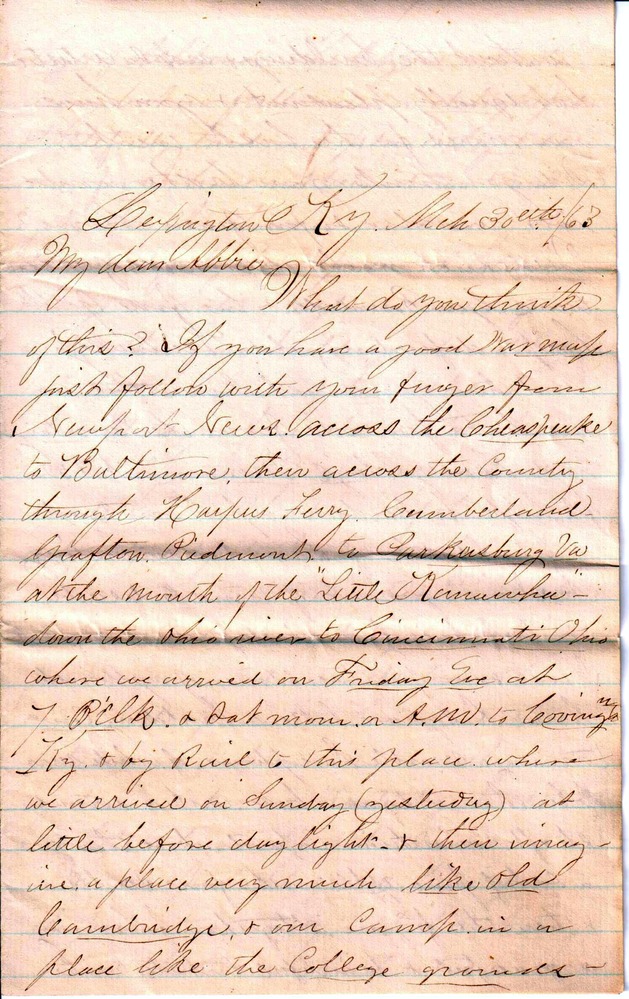 Lexington Ky. Mch 30eth /63
My dear Abbie
What do you think
of this? If you have a good War map
just follow with your finger from
Newport News. across the Cheaspeake
to Baltimore, then across the County
through Harpers Ferry. Cumberland
Grafton. Piedmont. to Parkersburg Va
at the mouth of the "Little Kanawha" -
down the Ohio river to Cincinnati Ohio
where we arrived on Friday Eve at
7 & Sat morn. or A.M. to Covington
Ky. & by Rail to this place. where
we arrived on Sunday (yesterday) at
little before daylight - & then imag-
ine. a place very much like old
Cambridge, & our Camp. in a
place like the College grounds -